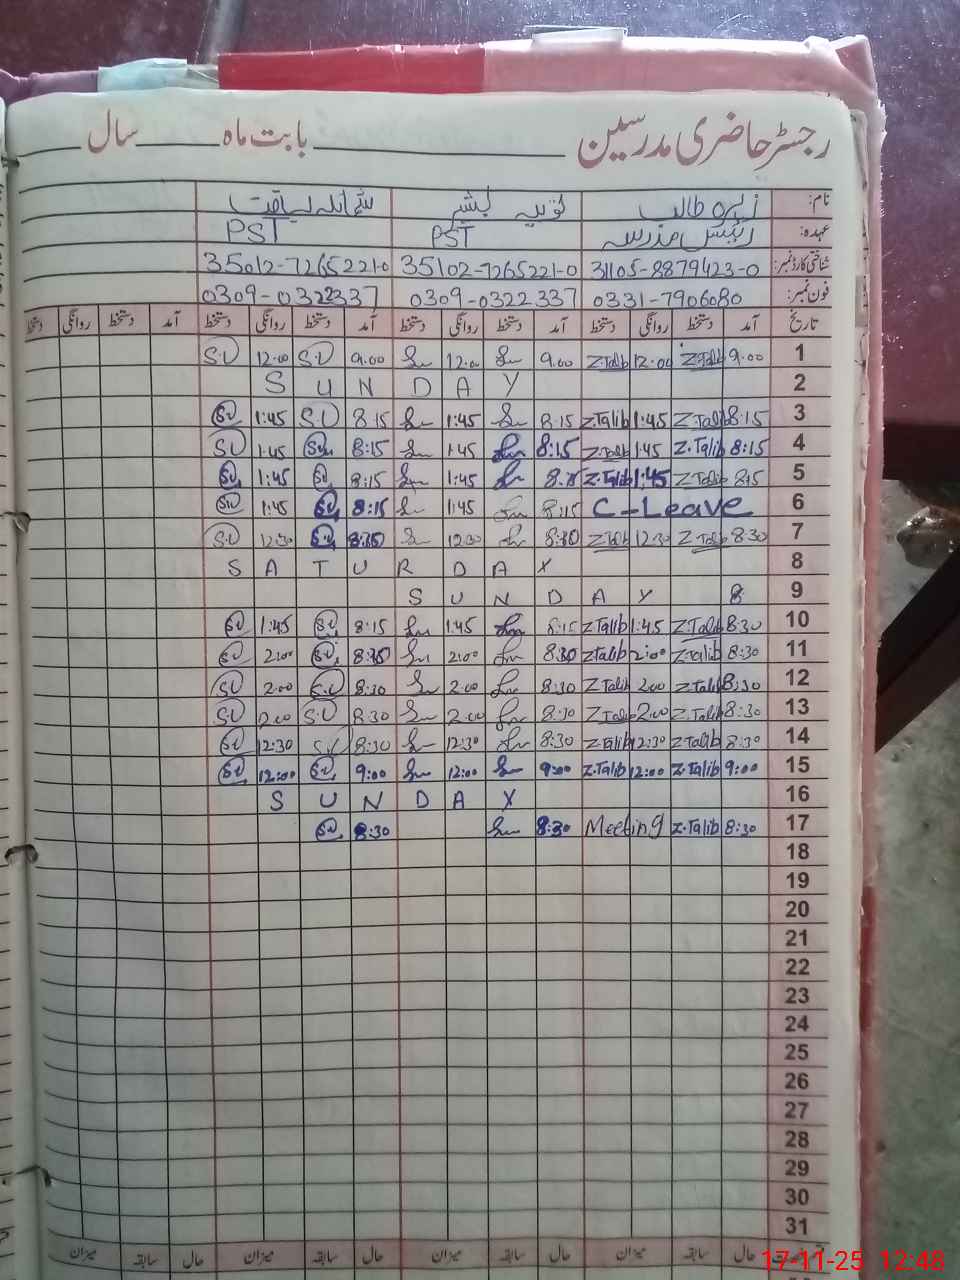 رجسٹر حاضری مدرسین بابت ماہ سال
نام: زہرہ طالب ثوبیہ بشیر شمائلہ لیاقت
عہدہ: PST PST
شناختی کارڈ نمبر: 31105-8879423-0 35102-7265221-0 35012-7265221-0
فون نمبر: 0331-7906080 0309-0322337 0309-0322337
تاریخ آمد دستخط روانگی دستخط آمد دستخط روانگی دستخط آمد دستخط روانگی دستخط آمد دستخط روانگی دستخط
1 9.00 Z.Talib 12.00 Z.Talib 9.00 12.00 9.00 S.U 12.00 S.U
2 S U N D A Y
3 8:15 Z.Talib 1:45 Z.Talib 8.15 1:45 8.15 S.U 1:45 SU
4 8:15 Z.Talib 1:45 Z.Talib 8:15 1:45 8:15 SU 1:45 SU
5 8:15 Z.Talib 1:45 Z.Talib 1:45 8:15 SU 1:45 SU
6 C-Leave 8:15 1:45 8:15 SU 1:45 SU
7 8:30 Z.Talib 12:30 Z.Talib 8:30 12:30 8:30 SU 12:30 S.U
8 S A T U R D A Y
9 8 S U N D A Y
10 8:30 Z.Talib 1:45 Z.Talib 8:15 1:45 8:15 SU 1:45 SU
11 8:30 Z.Talib 2:00 Z.Talib 8:30 2:00 8:30 SU 2:00 SU
12 8:30 Z.Talib 2:00 Z.Talib 8:30 2:00 8:30 S.U 2:00 S.U
13 8:30 Z.Talib 2:00 Z.Talib 8:30 2:00 8:30 S.U 2:00 S.U
14 8:30 Z.Talib 12:30 Z.Talib 8:30 12:30 8:30 S.U 12:30 SU
15 9:00 Z.Talib 12:00 Z.Talib 9:00 12:00 9:00 SU 12:00 SU
16 S U N D A Y
17 8:30 Z.Talib Meeting 8:30 8:30 SU
18
19
20
21
22
23
24
25
26
27
28
29
30
31
حال سابقہ میزان حال سابقہ میزان حال سابقہ میزان حال سابقہ میزان
17-11-25 12:48